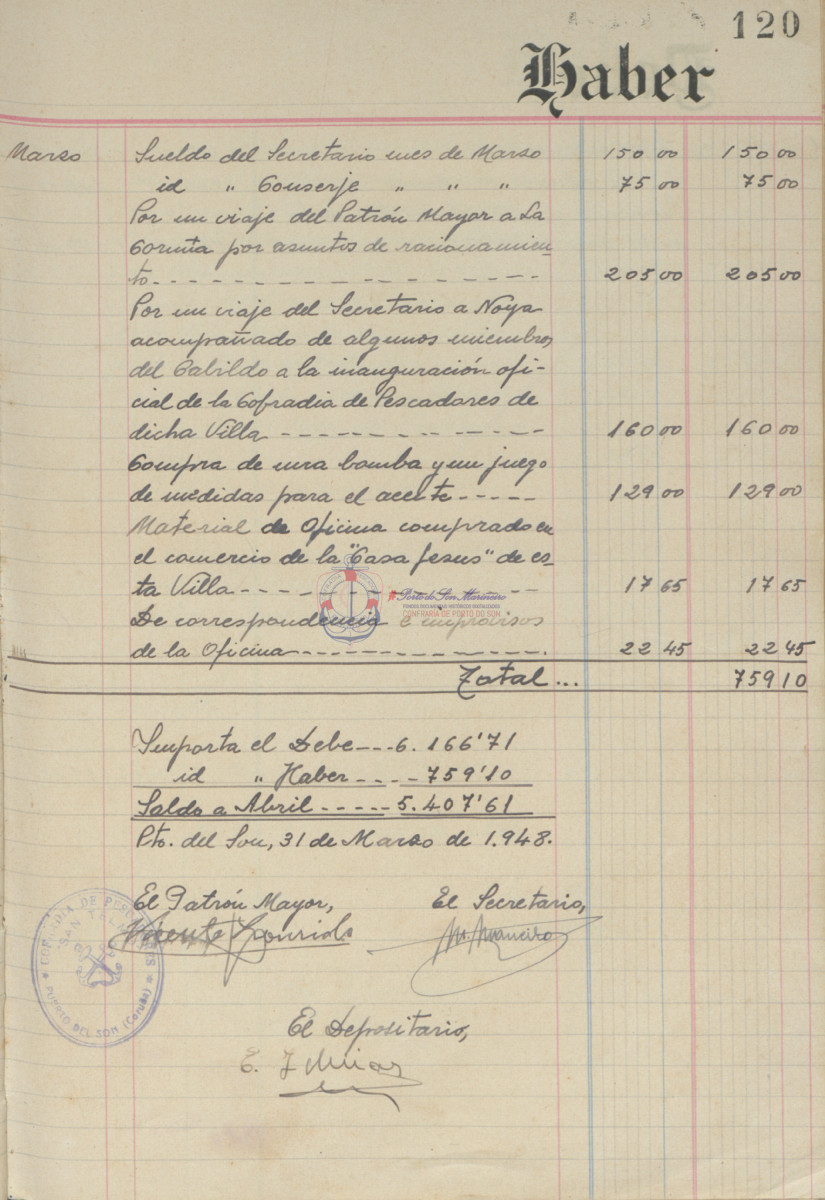 120
Haber
Marzo Sueldo del Secretario mes de Marzo 150 00 150 00
id " Conserje " " " 75 00 75 00
Por un viaje del Patrón Mayor a La
Coruña por asuntos de racionamien-
to 205 00 205 00
Por un viaje del Secretario a Noya
acompañado de algunos miembros
del Cabildo a la inauguración ofi-
cial de la Cofradia de Pescadores de
dicha Villa 160 00 160 00
Compra de una bomba y un juego
de medidas para el aceite 129 00 129 00
Material de Oficina comprado en
el comercio de la "Casa Jesus" de es-
ta Villa 17 65 17 65
Porto do Son Mariñeiro
FONDOS DOCUMENTAIS HISTÓRICOS DIXITALIZADOS
CONFRARÍA DE PORTO DO SON
De correspondencia e improvisos
de la Oficina 22 45 22 45
Total... 759 10
Importa el Debe --- 6.166'71
id " Haber ---- 759'10
Saldo a Abril ----- 5.407'61
Pto. del Son, 31 de Marzo de 1.948.
El Patrón Mayor, El Secretario,
Vicente
COFRADIA DE PESCADORES
SAN TELMO
PUERTO DEL SON (Coruña)
El Depositario,